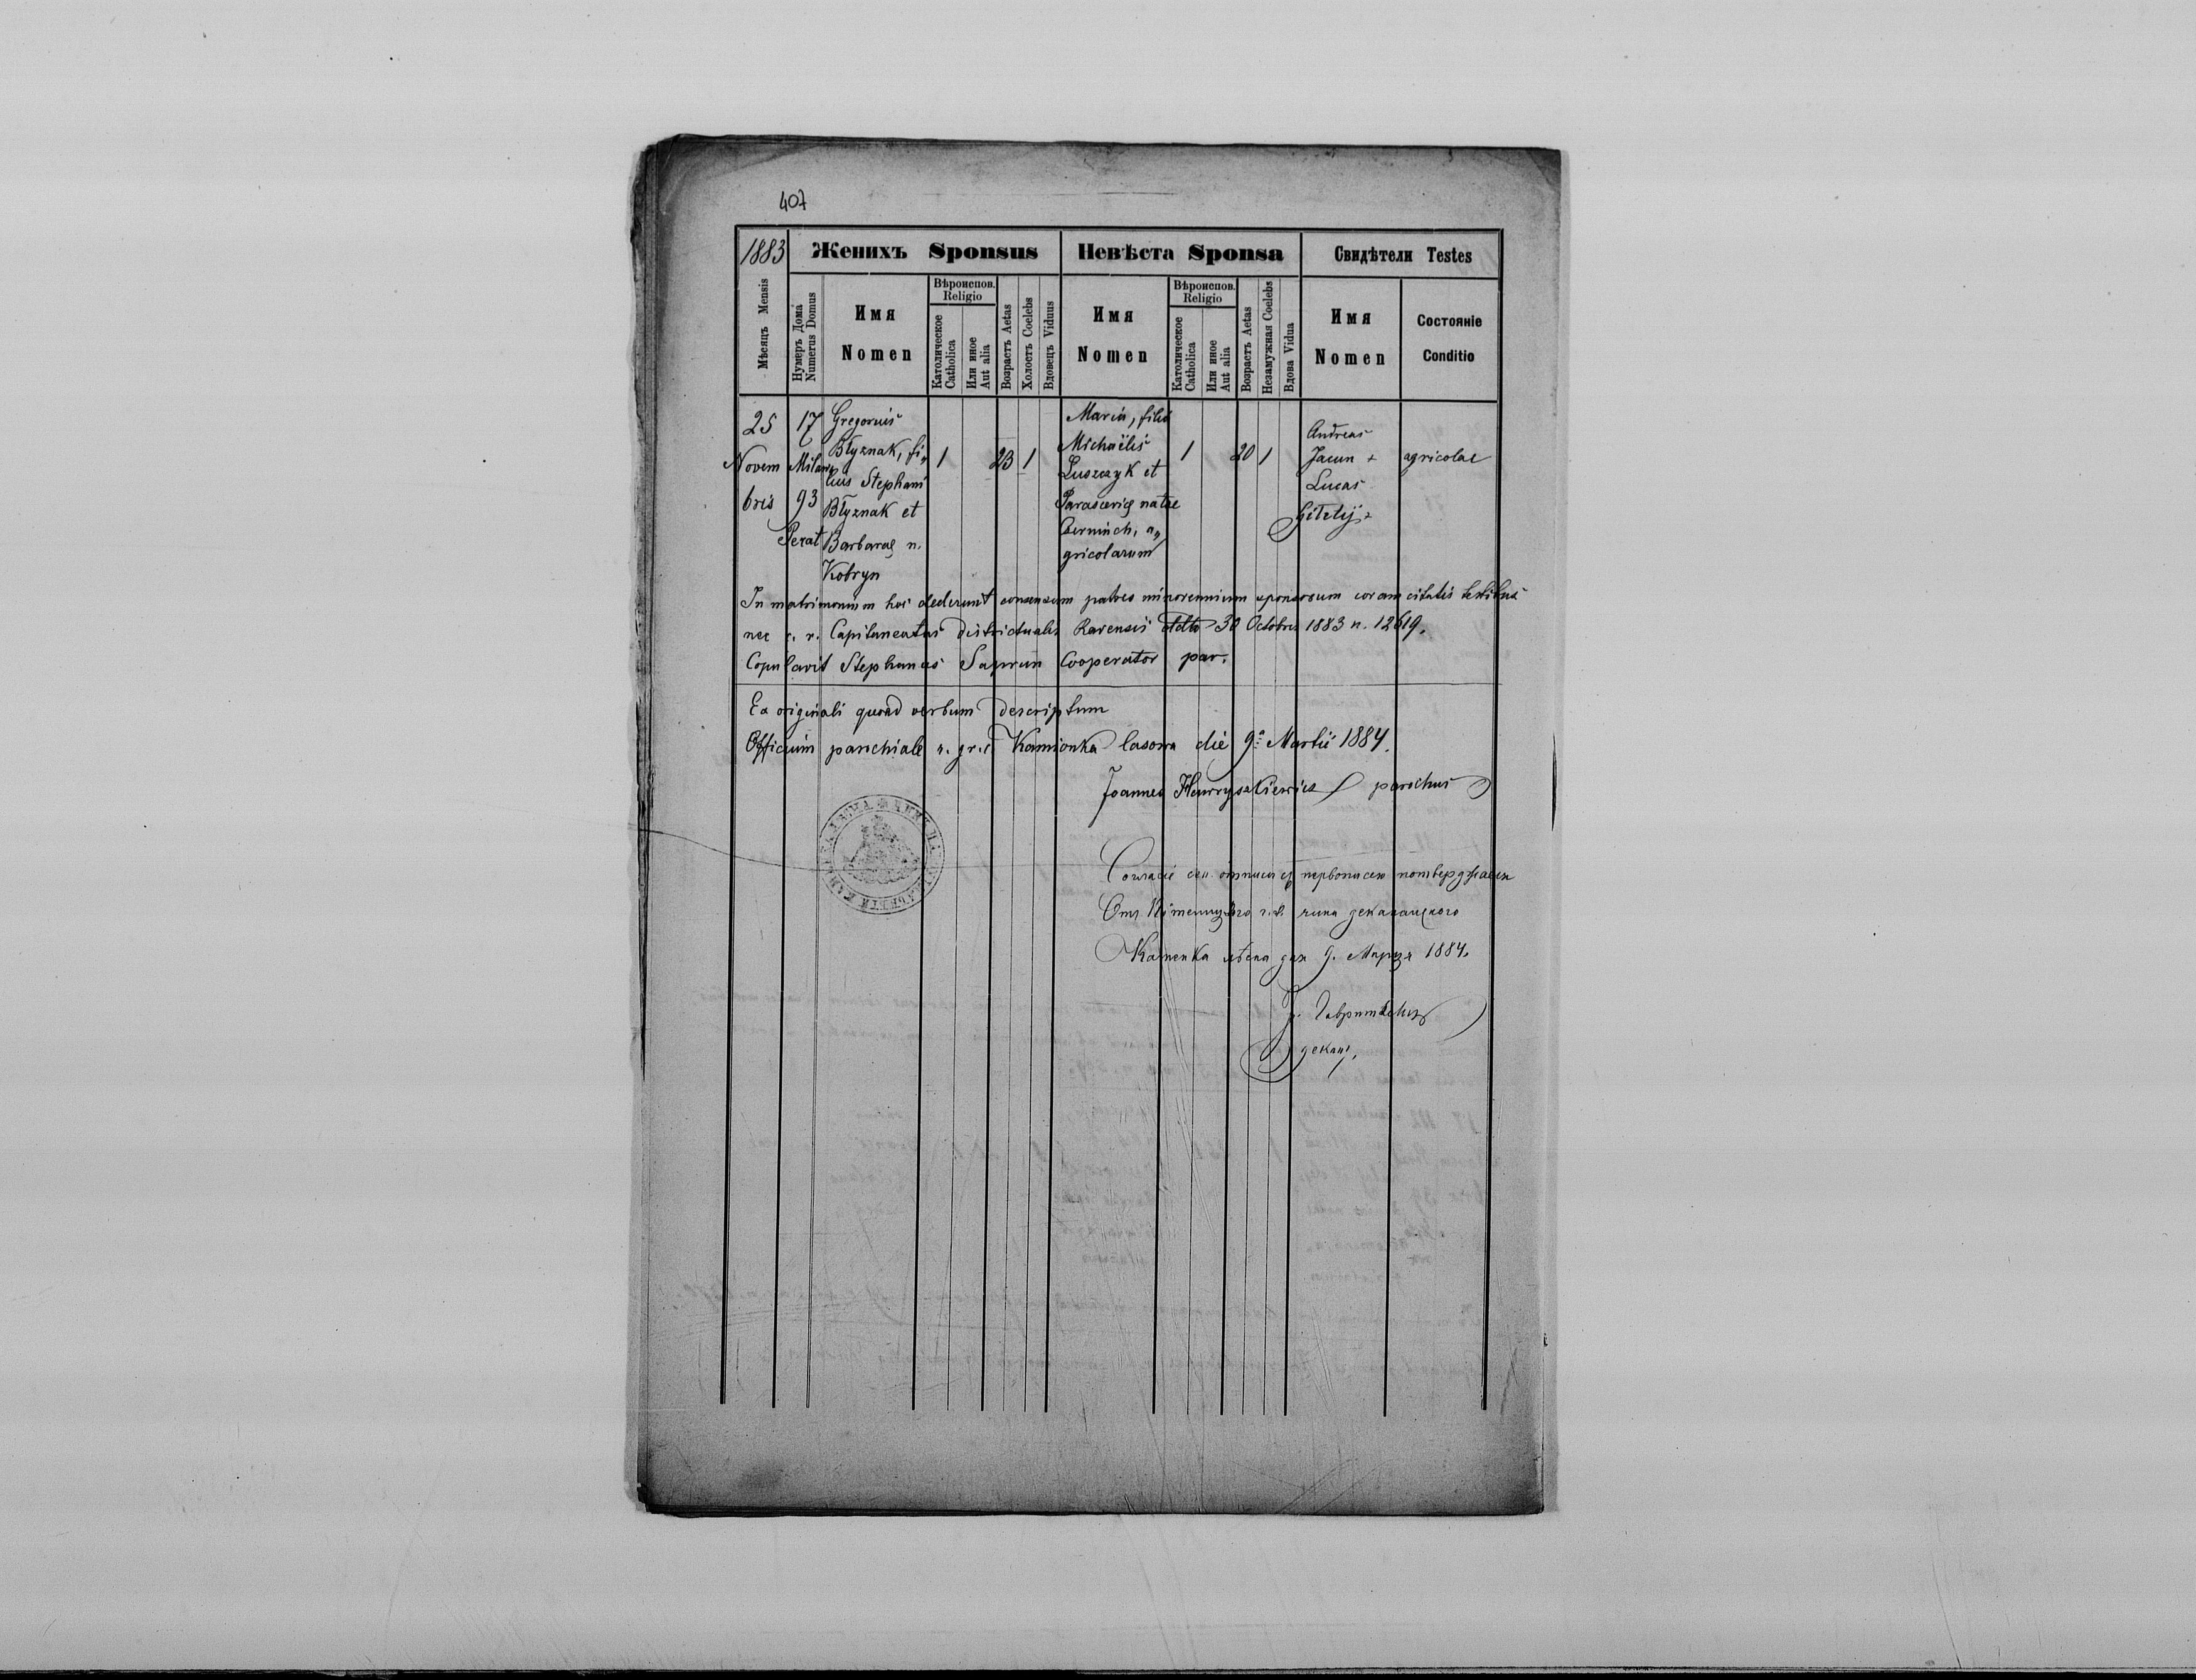 407
1883
Женихъ Sponsus
Невѣста Sponsa
Свидѣтели Testes
Мѣсяцъ Mensis
Нумеръ Дома
Numerus Domus
Имя
Nomen
Вѣроиспов.
Religio
Католическое
Catholica
Или иное
Aut alia
Возрастъ Aetas
Холостъ Coelebs
Вдовецъ Viduus
Имя
Nomen
Вѣроиспов.
Religio
Католическое
Catholica
Или иное
Aut alia
Возрастъ Aetas
Незамужная Coelebs
Вдова Vidua
Имя
Nomen
Состояніе
Conditio
25
Novem
bris
17
93
Perat
Gregorius
Błyznak, fi„
lius Stephani
Błyznak et
Barbarae n.
Kobryn
1
23
1
Maria, filia
Michaëlis
Luszczyk et
Parasceviae natae
a„
gricolarum
1
20
1
Andreas
Jacun +
Lucas
agricolae
In matrimonium hoc dederunt consensum patres minorennium sponsorum coram citatis testibus
nec c. r. Capitaneatus districtualis Ravensis ddto 30 Octobris 1883 n. 12619.
Copulavit Stephanus Saprun Cooperator par.
Ex originali quoad verbum descriptum
Officium parochiale r. gr. c. Kamionka lasowa die 9º Martii 1884.
Joannes parochus
отписи съ первописею потверджаеся
Отъ чина деканацкого
Каменка лѣсна дня 9. Марця 1884.
деканъ,